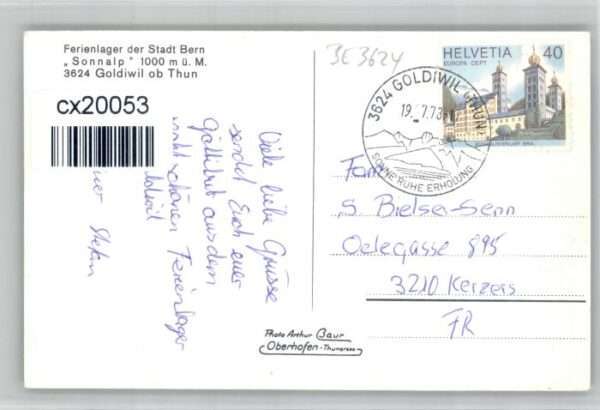 Ferienlager der Stadt Bern
„Sonnalp" 1000 m ü. M.
3624 Goldiwil ob Thun
cx20053
BE 3624
HELVETIA 40
EUROPA CEPT
3624 GOLDIWIL (THUN)
19. 7.78
SONNE RUHE ERHOLUNG
Viele liebe Grüsse
sendet Euch euer
Göttibub aus dem
schönen Ferienlager
Goldiwil
euer Stefan
Fam.
S. Bielser-Senn
Oelegasse 895
3210 Kerzers
FR
Photo Arthur Baur
Oberhofen-Thunersee